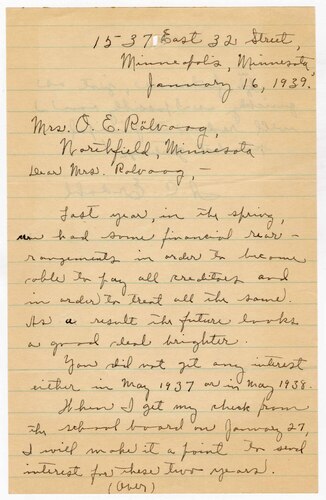 1537 East 32 Street,
Minneapolis, Minnesota,
January 16, 1939.
Mrs. O. E. Rölvaag,
Northfield, Minnesota
Dear Mrs. Rolvaag,-
Last year, in the spring,
we had some financial rear-
rangements in order to become
able to pay all creditors and
in order to treat all the same.
As a result the future looks
a good deal brighter.
You did not get any interest
either in May 1937 or in May 1938.
When I get my check from
the school board on January 27
I will make it a point to send
interest for these two years.
(Over)